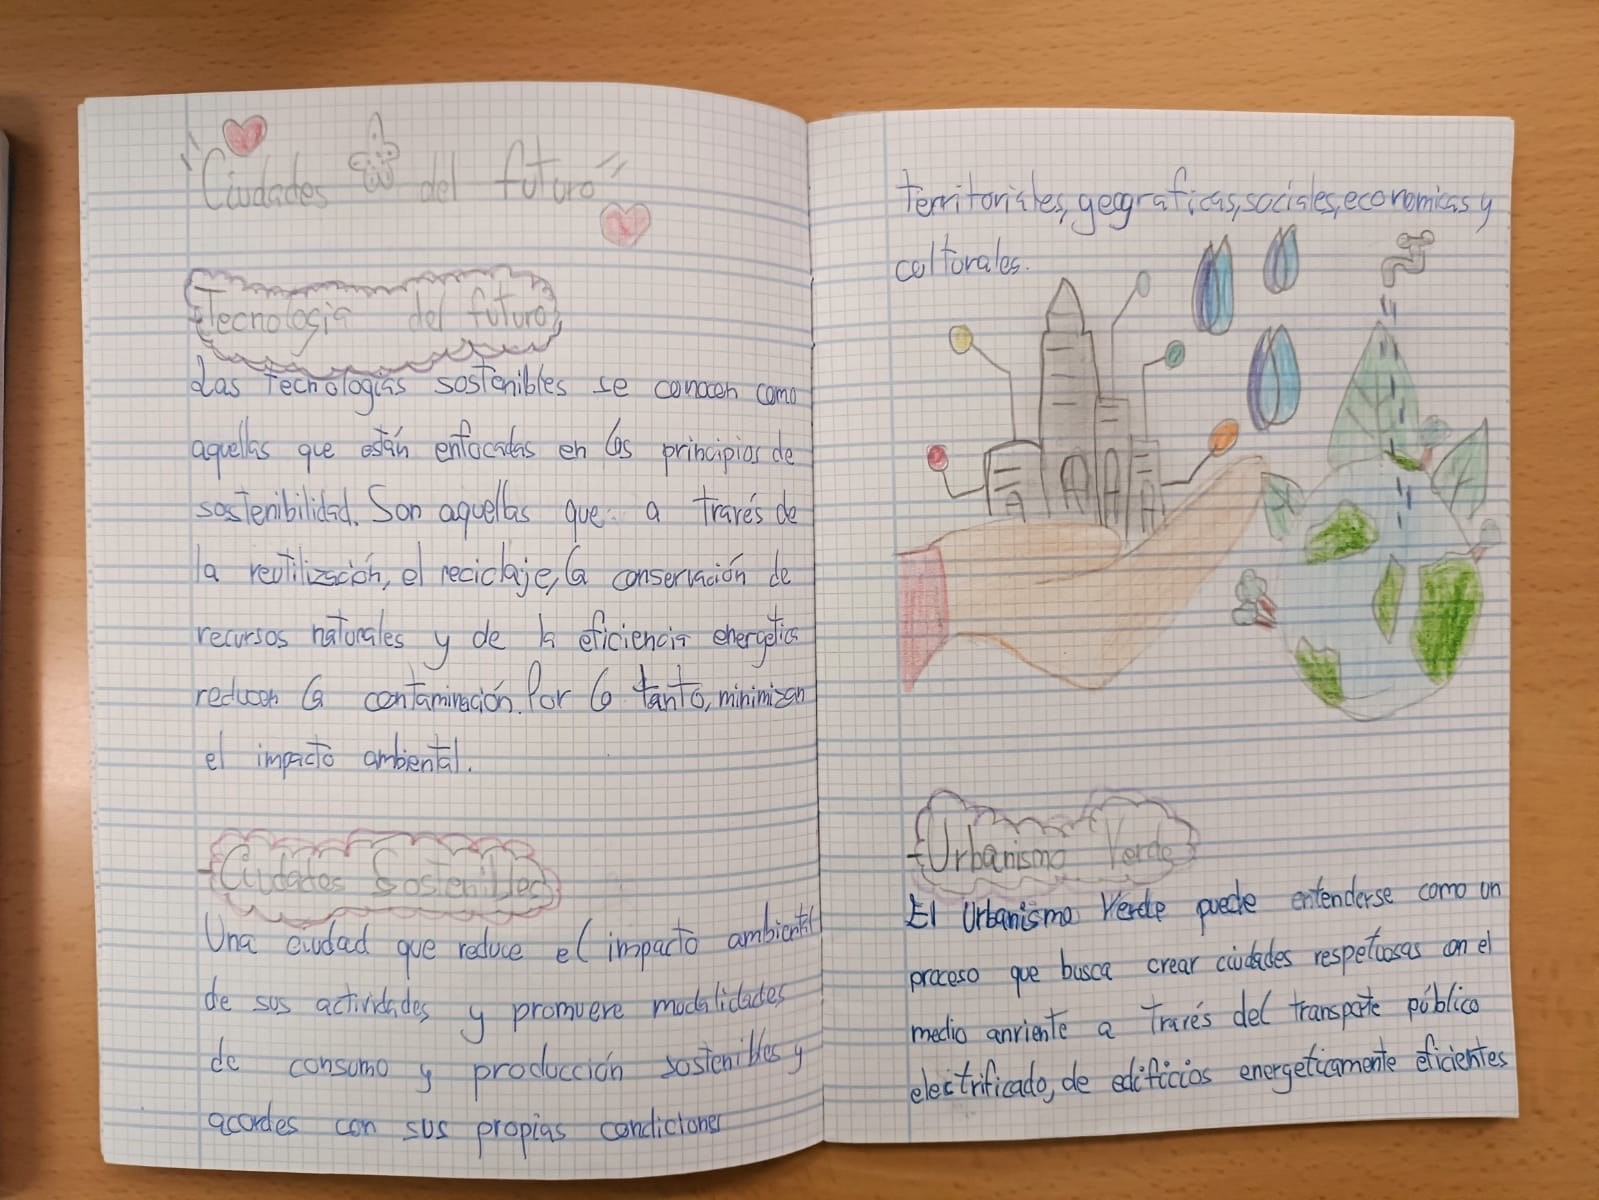 "Ciudades del futuro"
-Tecnologia del futuro
Las tecnologías sostenibles se conocen como
aquellas que están enfocadas en los principios de
sostenibilidad. Son aquellas que a través de
la reutilización, el reciclaje, la conservación de
recursos naturales y de la eficiencia energetica
reducen la contaminación. Por lo tanto, minimizan
el impacto ambiental.
-Ciudades Sostenibles
Una ciudad que reduce el impacto ambiental
de sus actividades y promuere modalidades
de consumo y producción sostenibles y
acordes con sus propias condiciones
territoriales, geograficas, sociales, economicas y
culturales.
-Urbanismo Verde
El Urbanismo Verde puede entenderse como un
proceso que busca crear ciudades respetuosas con el
medio anriente a través del transporte público
electrificado, de edificios energeticamente eficientes